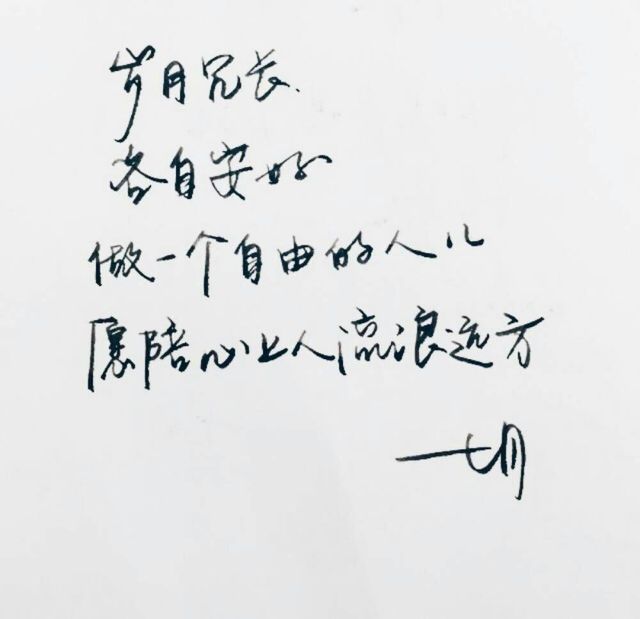 岁月冗长.
各自安好
做一个自由的人儿
愿陪心上人流浪远方
一七月